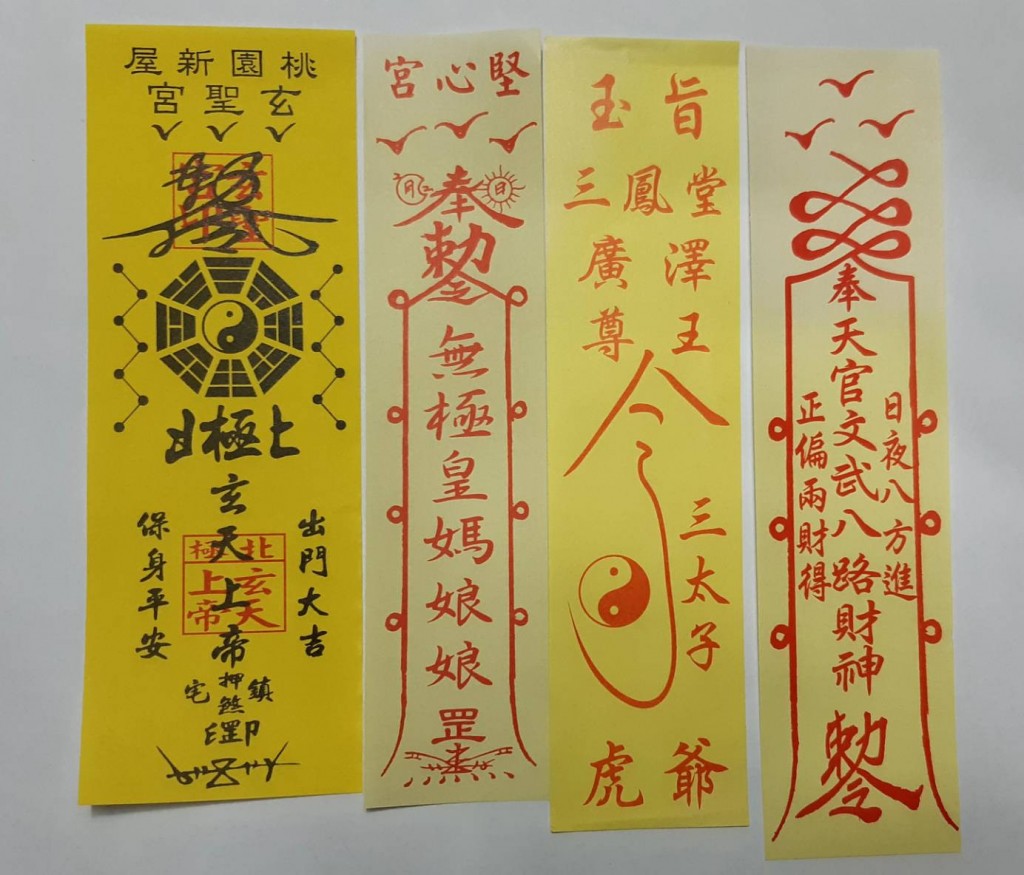 桃園新屋
玄聖宮
勅令
北極
玄天上帝
北極
玄天
上帝
出門大吉
保身平安
鎮宅
押煞
堅心宮
日
月
奉
勅令
無極皇媽娘娘
罡
玉旨
三鳳堂
廣澤
尊王
令
三太子
虎爺
奉天官文武八路財神
日夜八方進
正偏兩財得
勅令